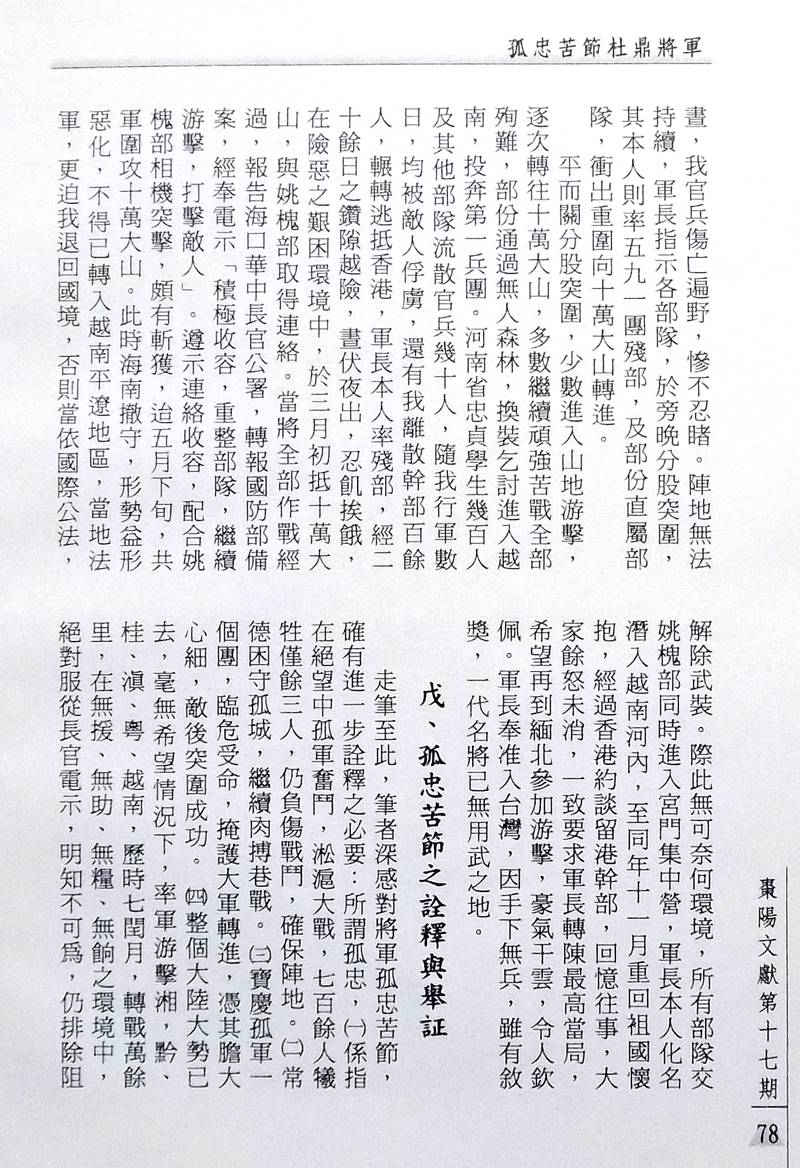 孤忠苦節杜鼎將軍
晝，我官兵傷亡遍野，慘不忍睹。陣地無法
持續，軍長指示各部隊，於旁晚分股突圍，
其本人則率五九一團殘部，及部份直屬部
隊，衝出重圍向十萬大山轉進。
平而關分股突圍，少數進入山地游擊，
逐次轉往十萬大山，多數繼續頑強苦戰全部
殉難，部份通過無人森林，換裝乞討進入越
南，投奔第一兵團。河南省忠貞學生幾百人
及其他部隊流散官兵幾十人，隨我行軍數
日，均被敵人俘虜，還有我離散幹部百餘
人，輾轉逃抵香港，軍長本人率殘部，經二
十餘日之鑽隙越險，晝伏夜出，忍飢挨餓，
在險惡之艱困環境中，於三月初抵十萬大
山，與姚槐部取得連絡。當將全部作戰經
過，報告海口華中長官公署，轉報國防部備
案，經奉電示「積極收容，重整部隊，繼續
游擊，打擊敵人」。遵示連絡收容，配合姚
槐部相機突擊，頗有斬獲，迨五月下旬，共
軍圍攻十萬大山。此時海南撤守，形勢益形
惡化，不得已轉入越南平遼地區，當地法
軍，更迫我退回國境，否則當依國際公法，
解除武裝。際此無可奈何環境，所有部隊交
姚槐部同時進入宮門集中營，軍長本人化名
潛入越南河內，至同年十一月重回祖國懷
抱，經過香港約談留港幹部，回憶往事，大
家餘怒未消，一致要求軍長轉陳最高當局，
希望再到緬北參加游擊，豪氣干雲，令人欽
佩。軍長奉准入台灣，因手下無兵，雖有敘
獎，一代名將已無用武之地。
戊、孤忠苦節之詮釋與舉証
走筆至此，筆者深感對將軍孤忠苦節，
確有進一步詮釋之必要：所謂孤忠，㈠係指
在絕望中孤軍奮鬥，淞滬大戰，七百餘人犧
牲僅餘三人，仍負傷戰鬥，確保陣地。㈡常
德困守孤城，繼續肉搏巷戰。㈢寶慶孤軍一
個團，臨危受命，掩護大軍轉進，憑其膽大
心細，敵後突圍成功。㈣整個大陸大勢已
去，毫無希望情況下，率軍游擊湘，黔、
桂、滇、粵、越南，歷時七閏月，轉戰萬餘
里，在無援、無助、無糧、無餉之環境中，
絕對服從長官電示，明知不可為，仍排除阻
棗陽文獻第十七期
78